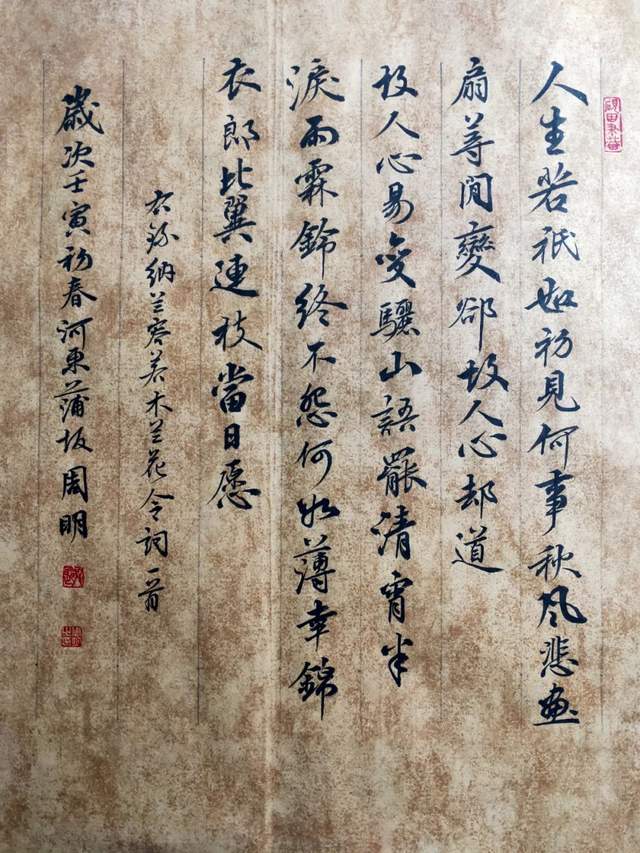 人生若祇如初見何事秋风悲畫
扇等閒變卻故人心却道
故人心易变驪山語罷清宵半
淚雨霖鈴終不怨何如薄幸錦
衣郎比翼連枝當日愿
右錄納兰容若木兰花令詞一首
歲次壬寅初春河東蒲坂周明